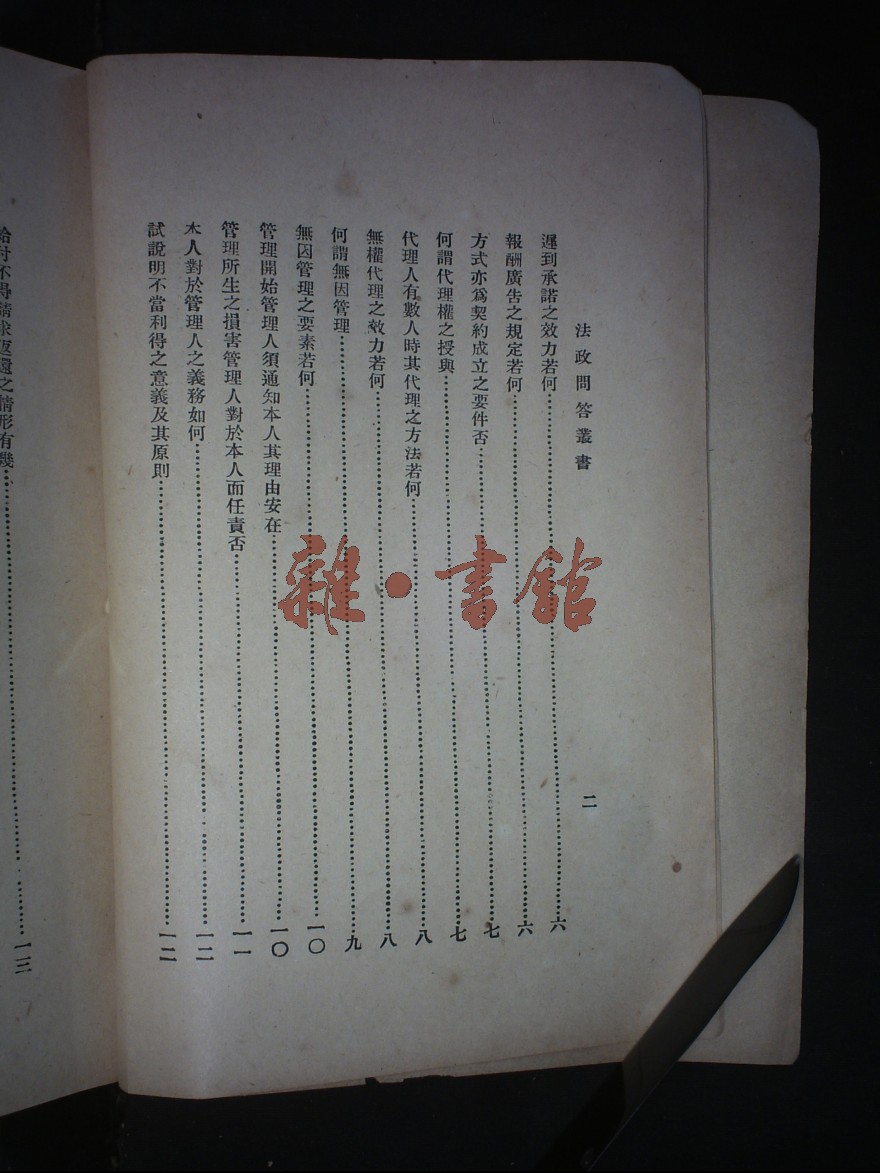 法政問答叢書
二
遲到承諾之效力若何……六
報酬廣告之規定若何……六
方式亦爲契約成立之要件否……七
何謂代理權之授與……七
代理人有數人時其代理之方法若何……八
無權代理之效力若何……八
何謂無因管理……九
無因管理之要素若何……一〇
管理開始管理人須通知本人其理由安在……一〇
管理所生之損害管理人對於本人而任責否……一一
本人對於管理人之義務如何……一二
試說明不當利得之意義及其原則……一二
給付不得請求返還之情形有幾……一三
雜·書館